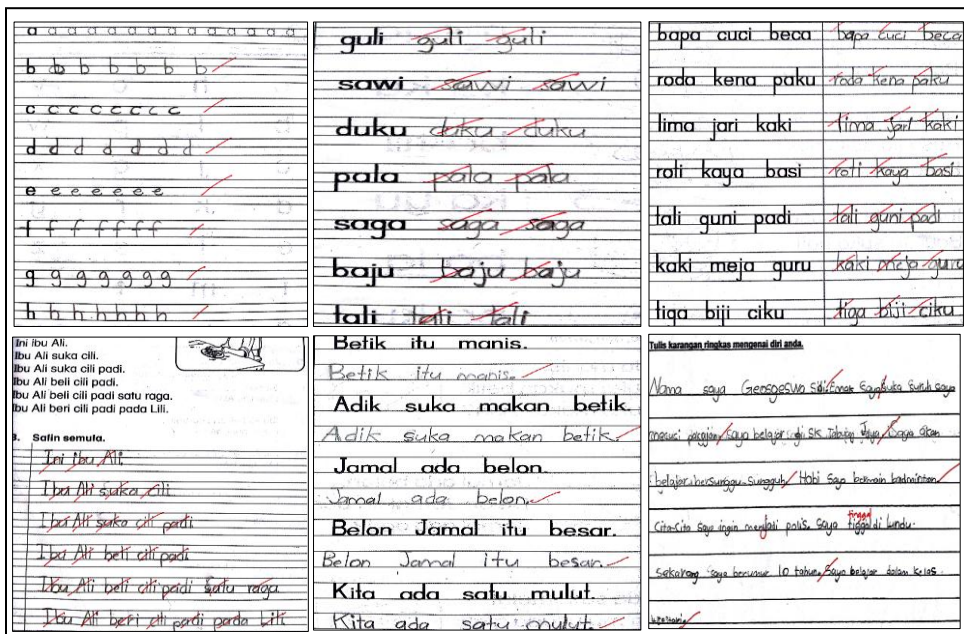 a a a a a a a a a a a a a a a
b b b b b b b b
c c c c c c c c c
d d d d d d d d
e e e e e e e
f f f f f f f
g g g g g g g g
h h h h h h h
guli guli guli
sawi sawi sawi
duku duku duku
pala pala pala
saga saga saga
baju baju baju
tali tali tali
bapa cuci beca bapa cuci beca
roda kena paku roda kena paku
lima jari kaki lima jari kaki
roti kaya basi roti kaya basi
tali guni padi tali guni padi
kaki meja guru kaki meja guru
tiga biji ciku tiga biji ciku
Ini ibu Ali.
Ibu Ali suka cili.
Ibu Ali suka cili padi.
Ibu Ali beli cili padi.
Ibu Ali beli cili padi satu raga.
Ibu Ali beri cili padi pada Lili.
B. Salin semula.
Ini ibu Ali.
Ibu Ali suka cili
Ibu Ali suka cili padi
Ibu Ali beli cili padi
Ibu Ali beli cili padi satu raga
Ibu Ali beri cili padi pada Lili
Betik itu manis.
Betik itu manis.
Adik suka makan betik.
Adik suka makan betik.
Jamal ada belon.
Jamal ada belon.
Belon Jamal itu besar.
Belon Jamal itu besar.
Kita ada satu mulut.
Kita ada satu mulut.
Tulis karangan ringkas mengenai diri anda.
Nama saya Emak saya suka suruh saya
mecuci pakaian. Saya belajar di SK Jaya. Saya akan
belajar bersunggu-sungguh. Hobi saya bermain badminton.
tinggal
Cita-cita saya ingin menjadi polis. Saya tiggal di lundu.
Sekarang saya berumur 10 tahun. Saya belajar dalam kelas